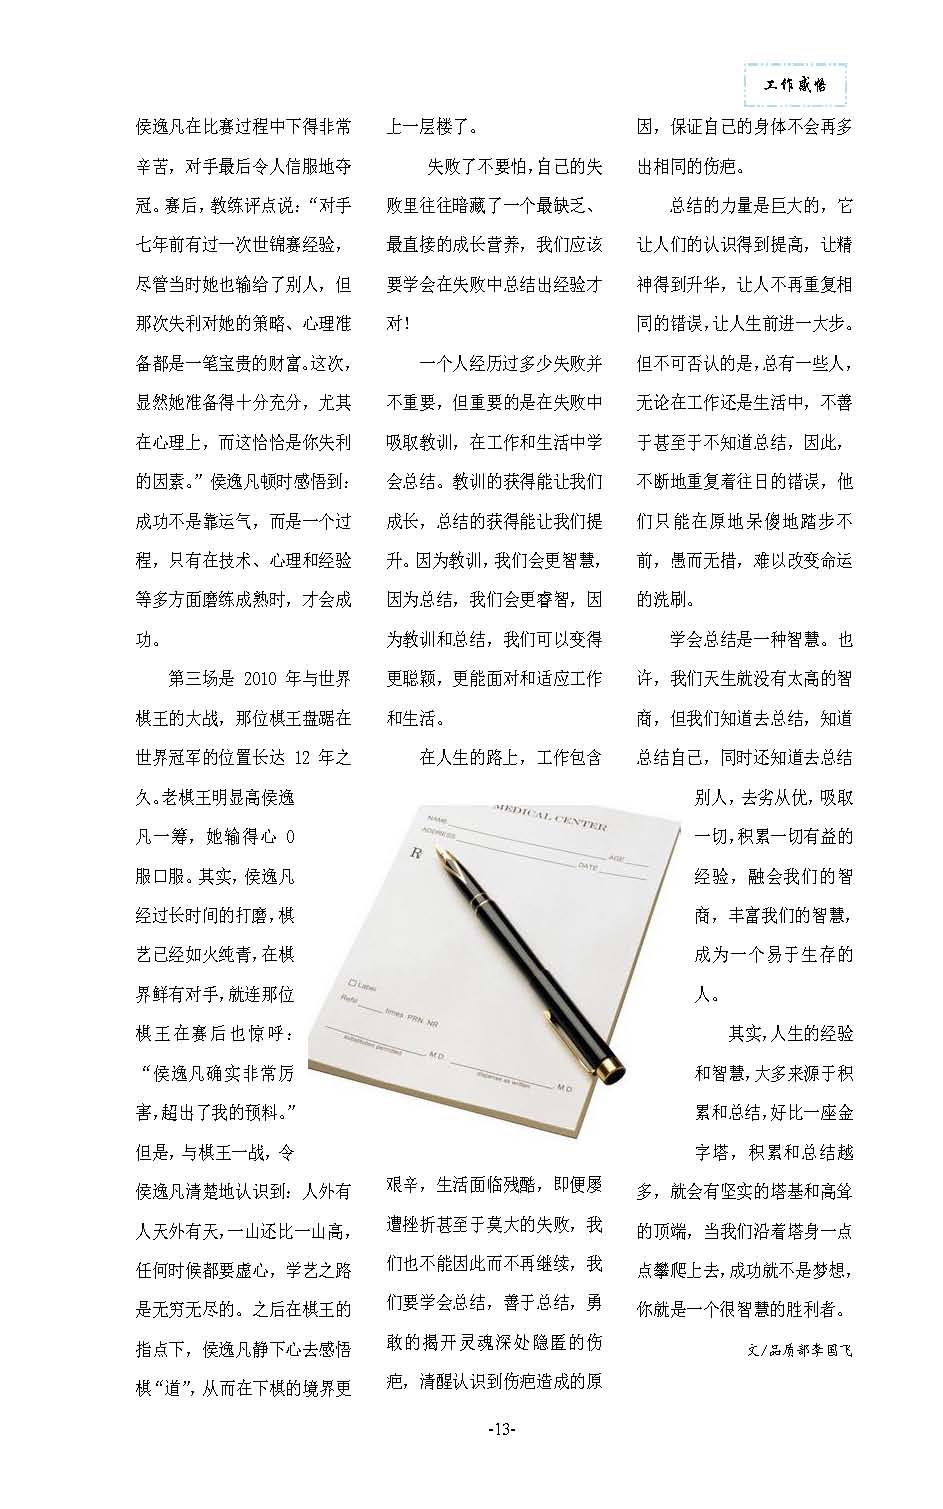 工作感悟
侯逸凡在比赛过程中下得非常
辛苦，对手最后令人信服地夺
冠。赛后，教练评点说：“对手
七年前有过一次世锦赛经验，
尽管当时她也输给了别人，但
那次失利对她的策略、心理准
备都是一笔宝贵的财富。这次，
显然她准备得十分充分，尤其
在心理上，而这恰恰是你失利
的因素。”侯逸凡顿时感悟到：
成功不是靠运气，而是一个过
程，只有在技术、心理和经验
等多方面磨练成熟时，才会成
功。
第三场是 2010 年与世界
棋王的大战，那位棋王盘踞在
世界冠军的位置长达 12 年之
久。老棋王明显高侯逸
凡一筹，她输得心 0
服口服。其实，侯逸凡
经过长时间的打磨，棋
艺已经如火纯青，在棋
界鲜有对手，就连那位
棋王在赛后也惊呼：
“侯逸凡确实非常厉
害，超出了我的预料。”
但是，与棋王一战，令
侯逸凡清楚地认识到：人外有
人天外有天，一山还比一山高，
任何时候都要虚心，学艺之路
是无穷无尽的。之后在棋王的
指点下，侯逸凡静下心去感悟
棋“道”，从而在下棋的境界更
上一层楼了。
失败了不要怕，自己的失
败里往往暗藏了一个最缺乏、
最直接的成长营养，我们应该
要学会在失败中总结出经验才
对！
一个人经历过多少失败并
不重要，但重要的是在失败中
吸取教训，在工作和生活中学
会总结。教训的获得能让我们
成长，总结的获得能让我们提
升。因为教训，我们会更智慧，
因为总结，我们会更睿智，因
为教训和总结，我们可以变得
更聪颖，更能面对和适应工作
和生活。
在人生的路上，工作包含
MEDICAL CENTER
NAME
ADDRESS
AGE
DATE
R
Label
Refill times PRN NR
substitution permitted M.D.
dispense as written M.D.
艰辛，生活面临残酷，即便屡
遭挫折甚至于莫大的失败，我
们也不能因此而不再继续，我
们要学会总结，善于总结，勇
敢的揭开灵魂深处隐匿的伤
疤，清醒认识到伤疤造成的原
因，保证自己的身体不会再多
出相同的伤疤。
总结的力量是巨大的，它
让人们的认识得到提高，让精
神得到升华，让人不再重复相
同的错误，让人生前进一大步。
但不可否认的是，总有一些人，
无论在工作还是生活中，不善
于甚至于不知道总结，因此，
不断地重复着往日的错误，他
们只能在原地呆傻地踏步不
前，愚而无措，难以改变命运
的洗刷。
学会总结是一种智慧。也
许，我们天生就没有太高的智
商，但我们知道去总结，知道
总结自己，同时还知道去总结
别人，去劣从优，吸取
一切，积累一切有益的
经验，融会我们的智
商，丰富我们的智慧，
成为一个易于生存的
人。
其实，人生的经验
和智慧，大多来源于积
累和总结，好比一座金
字塔，积累和总结越
多，就会有坚实的塔基和高耸
的顶端，当我们沿着塔身一点
点攀爬上去，成功就不是梦想，
你就是一个很智慧的胜利者。
文/品质部李国飞
-13-